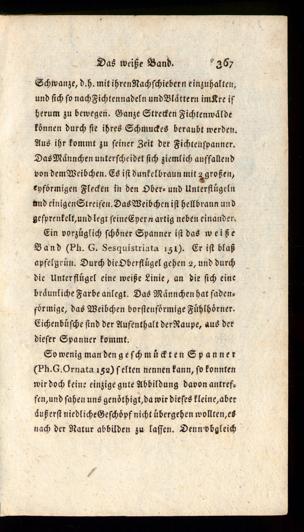 Das weiße Band. 367
Schwanze, d.h. mit ihren Nachschiebern einzuhalten,
und sich so nach Fichtennadeln und Blättern im Kreis
herum zu bewegen. Ganze Strecken Fichtenwälde
können durch sie ihres Schmuckes beraubt werden.
Aus ihr kommt zu seiner Zeit der Fichtenspanner.
Das Männchen unterscheidet sich ziemlich auffallend
von dem Weibchen. Es ist dunkelbraun mit 2 großen,
eyförmigen Flecken in den Ober- und Unterflügeln
und einigen Streifen. Das Weibchen ist hellbraun und
gesprenkelt, und legt seine Eyer n artig neben einander.
Ein vorzüglich schöner Spanner ist das weiße
Band (Ph. G. Sesquistriata 151). Er ist blaß
apfelgrün. Durch die Oberflügel gehen 2, und durch
die Unterflügel eine weiße Linie, an die sich eine
bräunliche Farbe anlegt. Das Männchen hat faden-
förmige, das Weibchen borstenförmige Fühlhörner.
Eichenbüsche sind der Aufenthalt der Raupe, aus der
dieser Spanner kommt.
So wenig man den geschmückten Spanner
(Ph. G. Ornata 152) selten nennen kann, so konnten
wir doch keine einzige gute Abbildung davon antref-
fen, und sahen uns genöthigt, da wir dieses kleine, aber
äußerst niedliche Geschöpf nicht übergehen wollten, es
nach der Natur abbilden zu lassen. Denn obgleich